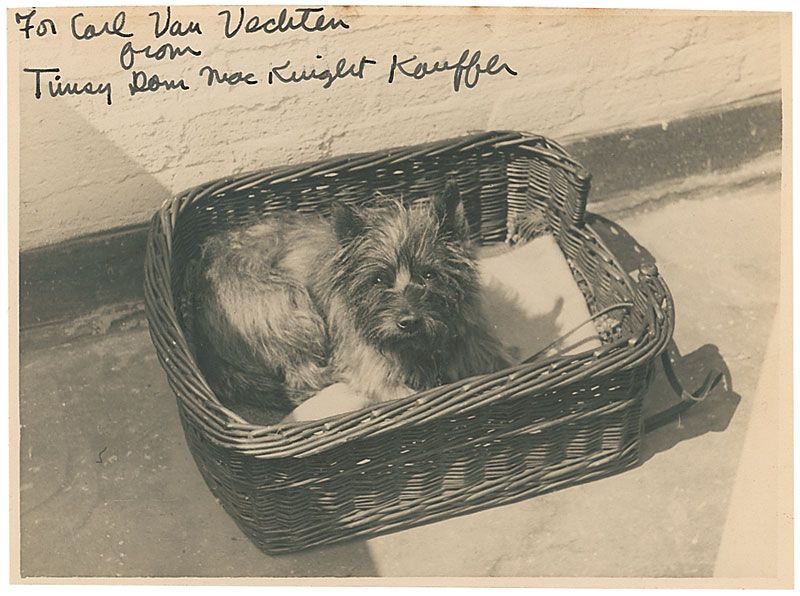 For Carl Van Vechten
from
Timsy Dom Mac Knight Kauffer